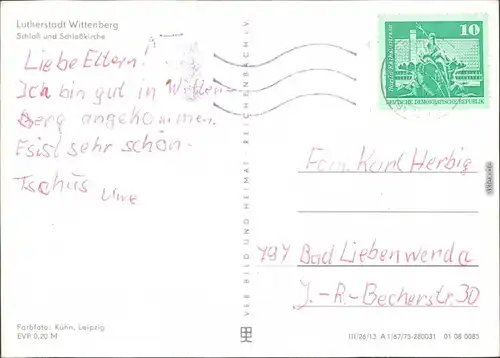 Lutherstadt Wittenberg
Schloß und Schloßkirche
Liebe Eltern!
Ich bin gut in Witten-
Berg angekommen.
Es ist sehr schön.
Tschüs
Uwe
Farbfoto: Kühn, Leipzig
EVP 0,20 M
VEB BILD UND HEIMAT REICHENBACH i. V.
10
DEUTSCHE DEMOKRATISCHE REPUBLIK
Fam. Karl Herbig
797 Bad Liebenwerda
J.-R.-Becherstr. 30
III/26/13 A 1/67/75-280031 01 08 0085